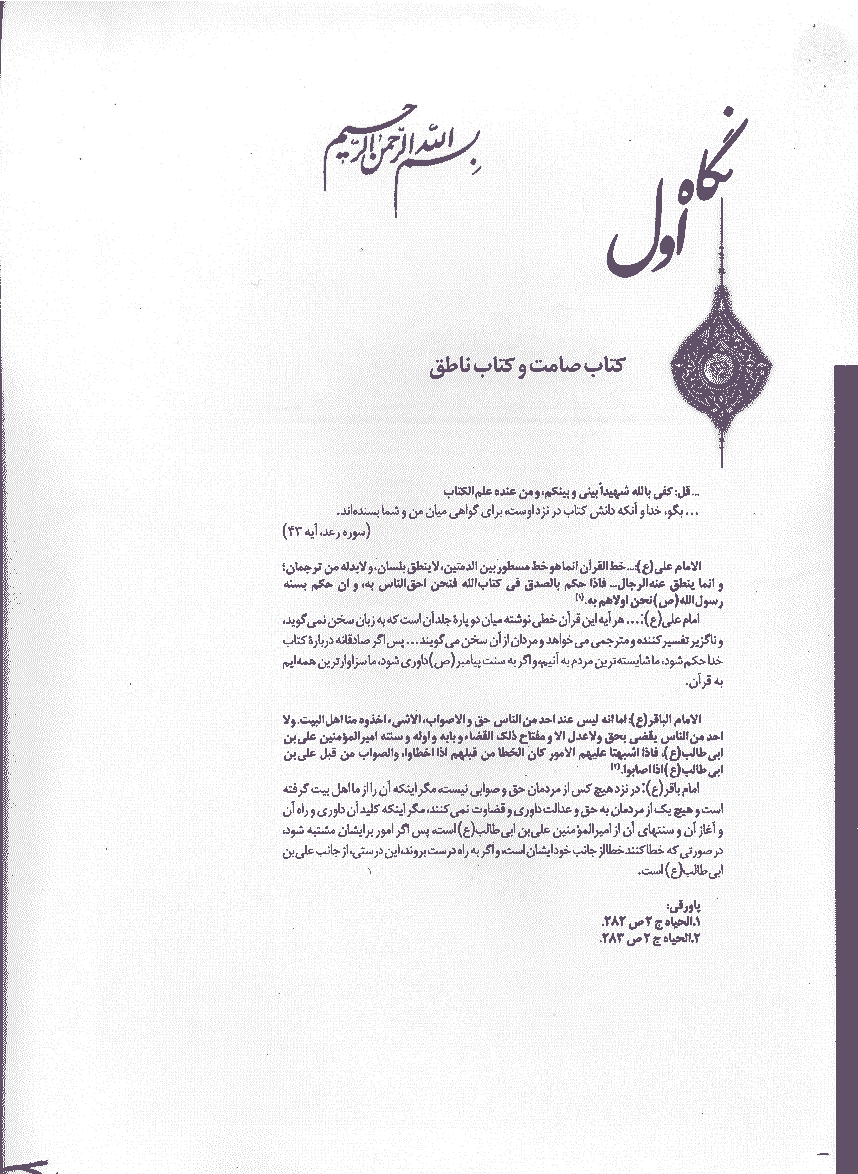 بسم الله الرحمن الرحیم
نگاه
اول
کتاب صامت و کتاب ناطق
... قل: کفی بالله شهیداً بینی و بینکم، و من عنده علم الکتاب
... بگو، خدا و آنکه دانش کتاب در نزد اوست، برای گواهی میان من و شما بسنده‌اند.
(سوره رعد، آیه ۴۳)
الامام علی(ع):... خط القرآن انما هو خط مسطور بین الدفتین، لاینطق بلسان، و لابد له من ترجمان؛
و انما ینطق عنه الرجال... فاذا حکم بالصدق فی کتاب الله فنحن احق الناس به، و ان حکم بسنه
رسول الله(ص) نحن اولاهم به.(۱)
امام علی(ع):... هر آیه این قرآن خطی نوشته میان دو پارۀ جلد آن است که به زبان سخن نمی‌گوید،
و ناگزیر تفسیر کننده و مترجمی می‌خواهد و مردان از آن سخن می‌گویند... پس اگر صادقانه دربارۀ کتاب
خدا حکم شود، ما شایسته‌ترین مردم به آنیم، و اگر به سنت پیامبر(ص) داوری شود، ما سزاوارترین همه‌ایم
به قرآن.
الامام الباقر(ع): اما انه لیس عند احد من الناس حق و لاصواب، الا شی، اخذوه منا اهل البیت. ولا
احد من الناس یقضی بحق ولاعدل الا و مفتاح ذلک القضاء و بابه و اوله و سننه امیرالمؤمنین علی‌بن
ابی طالب(ع). فاذا اشبهتا علیهم الامور کان الخطا من قبلهم اذا اخطاوا، والصواب من قبل علی‌بن
ابی طالب(ع) اذا اصابوا.(۲)
امام باقر(ع): در نزد هیچ کس از مردمان حق و صوابی نیست، مگر اینکه آن را از ما اهل بیت گرفته
است و هیچ یک از مردمان به حق و عدالت داوری و قضاوت نمی‌کنند، مگر اینکه کلید آن داوری و راه آن
و آغاز آن و سنتهای آن از امیرالمؤمنین علی‌بن ابی طالب(ع) است، پس اگر امور برایشان مشتبه شود،
در صورتی که خطا کنند خطا از جانب خود ایشان است، و اگر به راه درست بروند، این درستی، از جانب علی‌بن
ابی طالب(ع) است.
پاورقی:
۱.الحیاه ج ۲ ص ۲۸۲.
۲.الحیاه ج ۲ ص ۲۸۳.